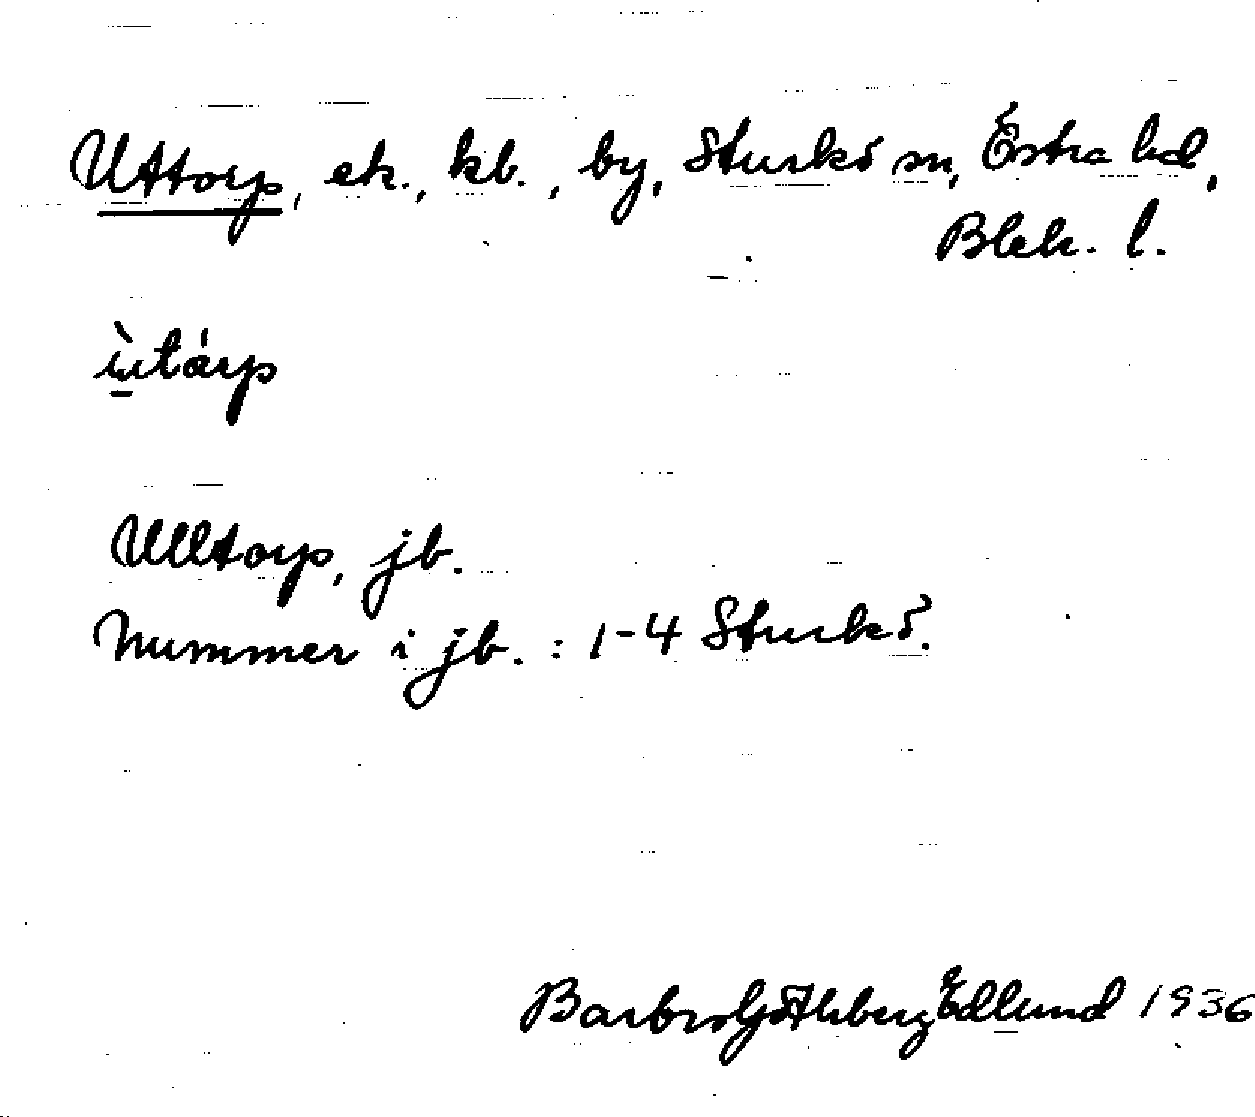 Uttorp, ek., kb., by, Sturkö sn, Östra hd,
Blek. l.
ùtárp
Ulltorp, jb.
Nummer i jb. : 1-4 Sturkö.
Barbro Edlund 1936